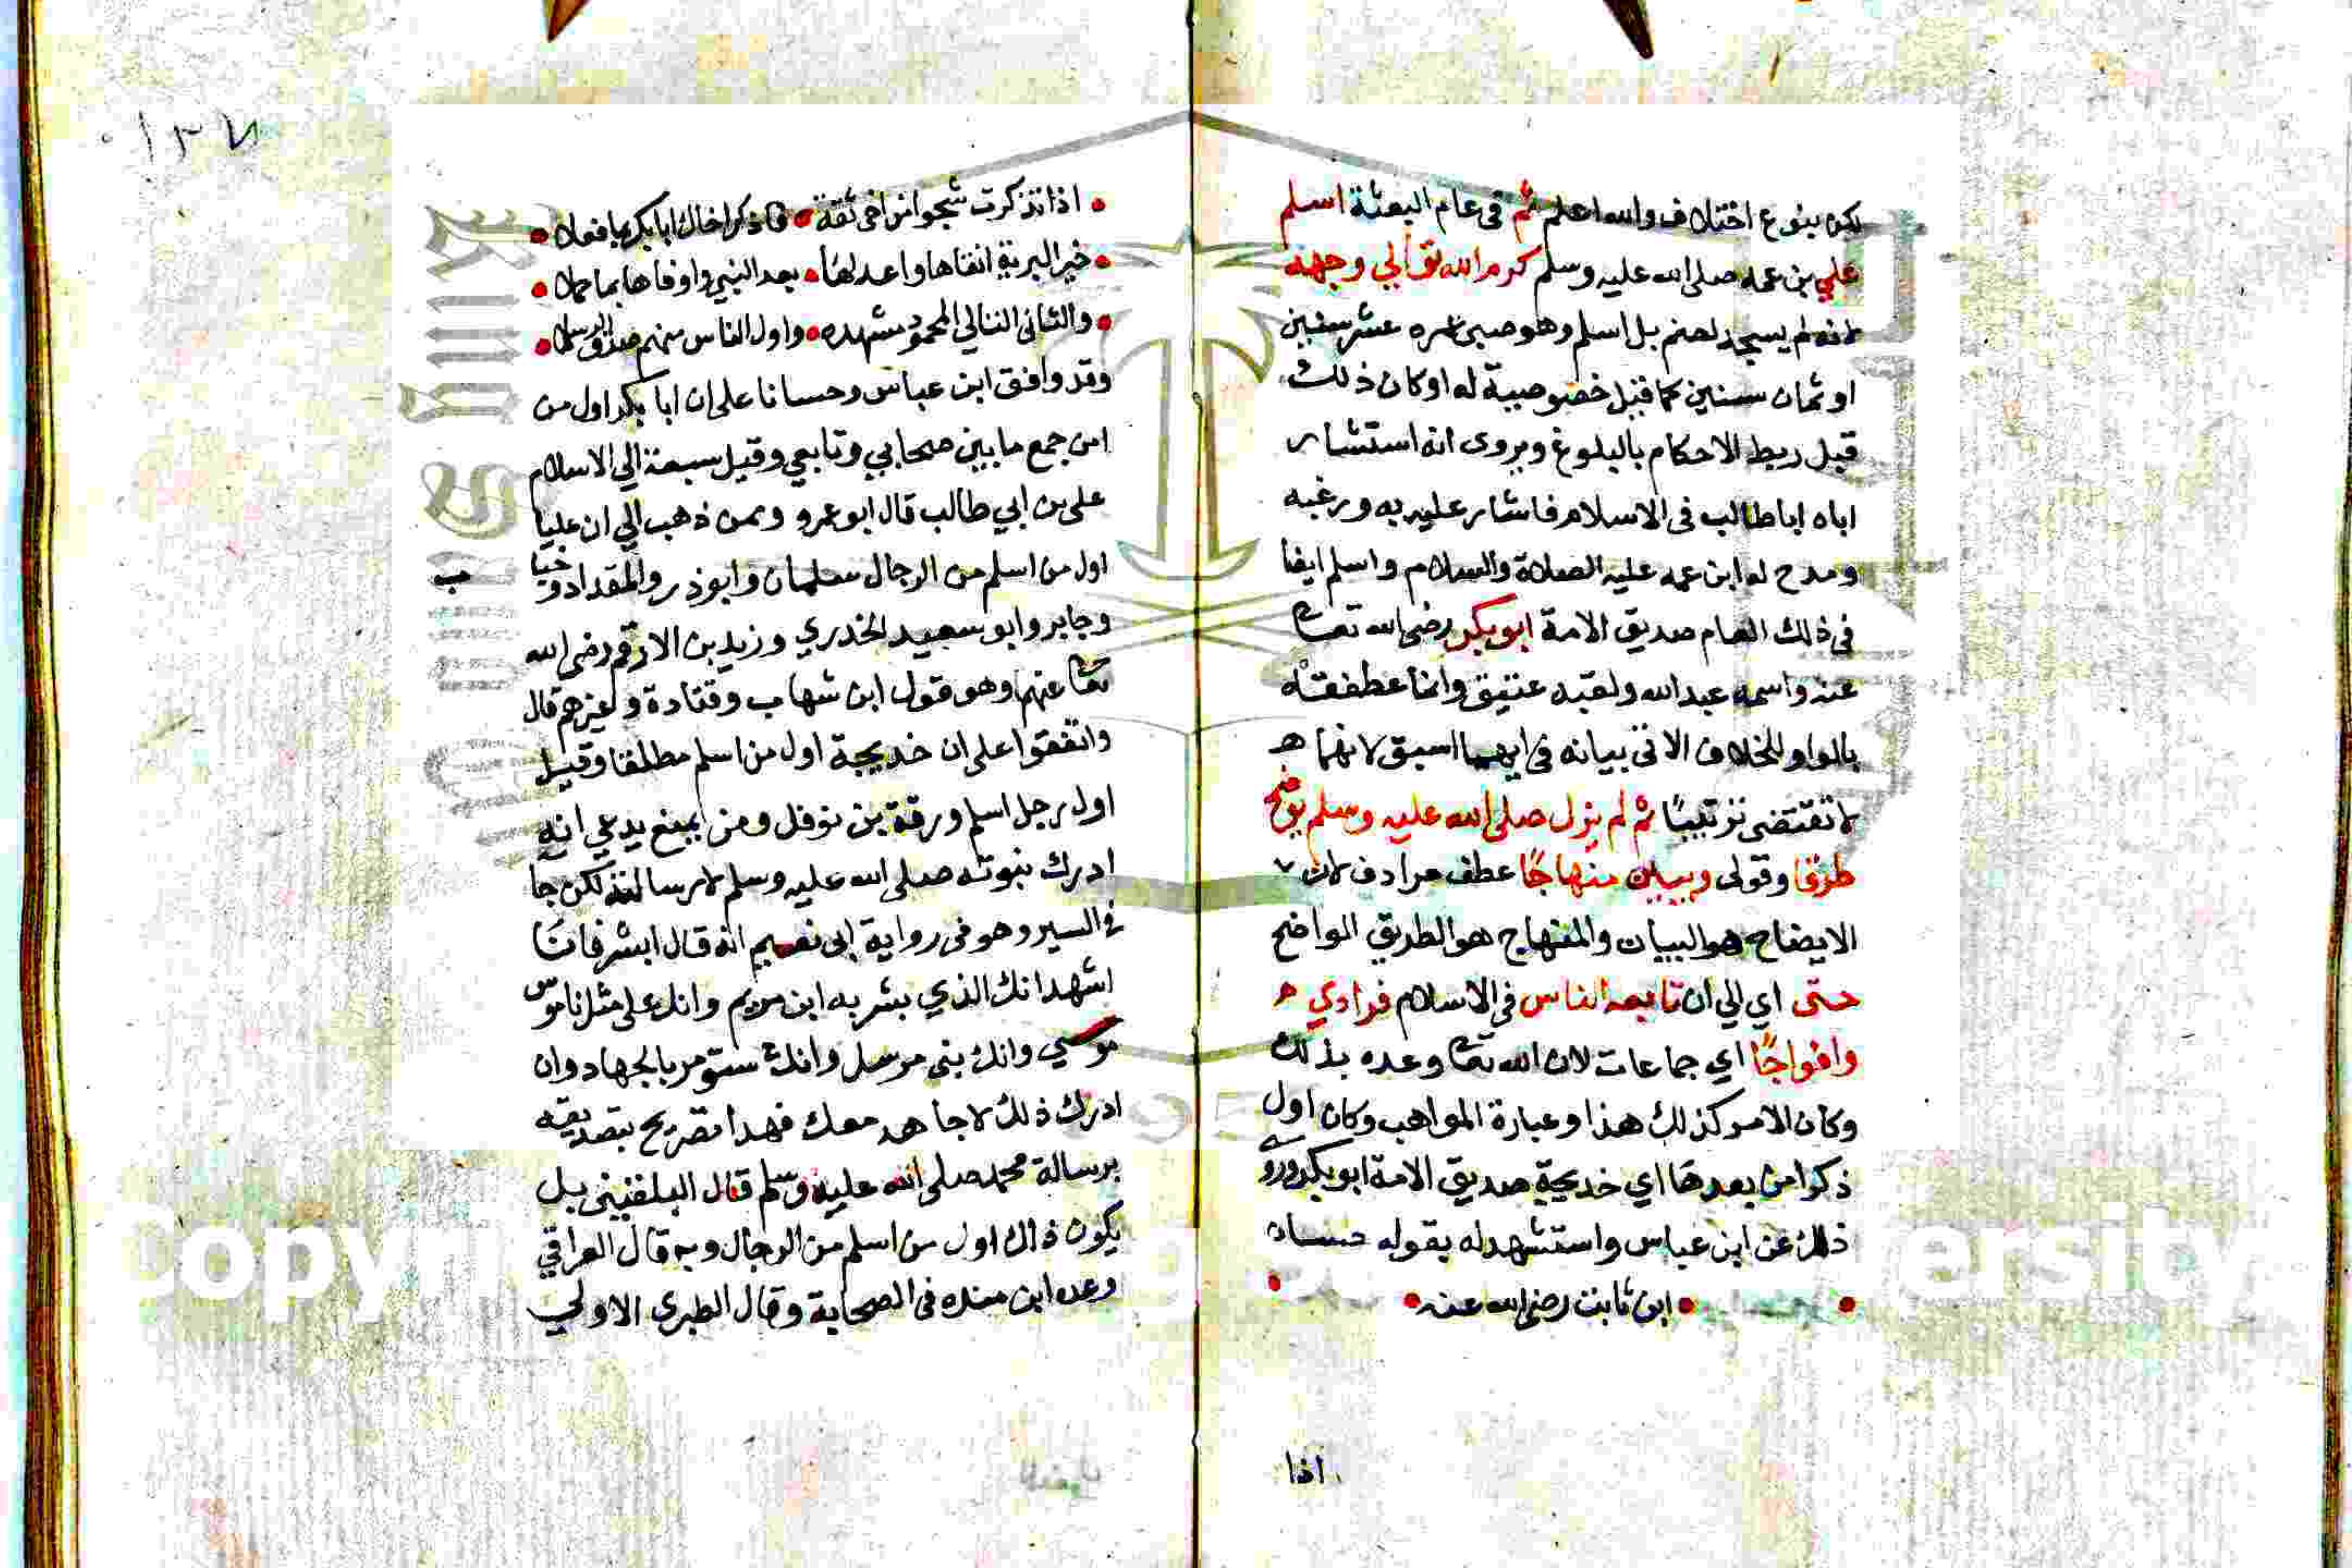 لكن بنوع اختلاف والله اعلم ثم في عام البعثة اسلم
علي بن عمه صلى الله عليه وسلم كرم الله تعالي وجهه
لانه لم يسجد لصنم بل اسلم وهو صبي عمره عشر سنين
او ثمان سنين كما قيل خصوصية له او كان ذلك
قبل ربط الاحكام بالبلوغ ويروى انه استشار
اباه ابا طالب في الاسلام فاشار عليه به ورغبه
ومدح له ابن عمه عليه الصلاة والسلام واسلم ايضا
في ذلك العام صديق الامة ابو بكر رضي الله تعا
عنه واسمه عبد الله ولقبه عتيق وانما عطفته
بالواو للخلاف الاتي بيانه في ايهما اسبق لانها
لا تقتضي ترتيبًا ثم لم يزل صلى الله عليه وسلم يوضح
طرقا وقولى ويبين منهاجًا عطف مرادف لان
الايضاح هو البيان والمنهاج هو الطريق الواضح
حتى اي الي ان تابعه الناس في الاسلام فرادي
وافواجًا اي جماعات لان الله تعا وعده بذلك
وكان الامر كذلك هذا وعبارة المواهب وكان اول
ذكر امن بعدها اي خديجة صديق الامة ابو بكر وروي
ذلك عن ابن عباس واستشهد له بقوله حسان
ابن ثابت رضي الله عنه
اذا
١٣٧
اذا تذكرت شجوا من اخي ثقة فاذكر اخاك ابا بكر بما فعلا
خير البرية اتقاها واعدلها بعد النبي واوفاها بما حملا
والثاني التالي المحمود مشهده واول الناس منهم صدق الرسلا
وقد وافق ابن عباس وحسانا على ان ابا بكر اول من
امن جمع ما بين صحابي وتابعي وقيل سبعة الي الاسلام
علي بن ابي طالب قال ابو عمرو وممن ذهب الي ان عليا
اول من اسلم من الرجال سلمان وابوذر والمقداد وخبا
ب
وجابر وابو سعيد الخدري وزيد بن الارقم رضي الله
تعا عنهم وهو قول ابن شهاب وقتادة وغيرهم قال
واتفقوا على ان خديجة اول من اسلم مطلقا وقيل
اول رجل اسلم ورقة بن نوفل ومن يمنع يدعي انه
ادرك نبوته صلى الله عليه وسلم لا رسالته لكن جا
في السير وهو في رواية ابي نعيم انه قال ابشر فانا
اشهد انك الذي بشر به ابن مريم وانك على مثل ناموس
موسي وانك نبي مرسل وانك ستومر بالجهاد وان
ادرك ذلك لاجاهد معك فهذا تصريح بتصديقه
برسالة محمد صلى الله عليه وسلم قال البلقيني بل
يكون ذلك اول من اسلم من الرجال وبه قال العراقي
وعده ابن منده في الصحابة وقال الطبري الاولي